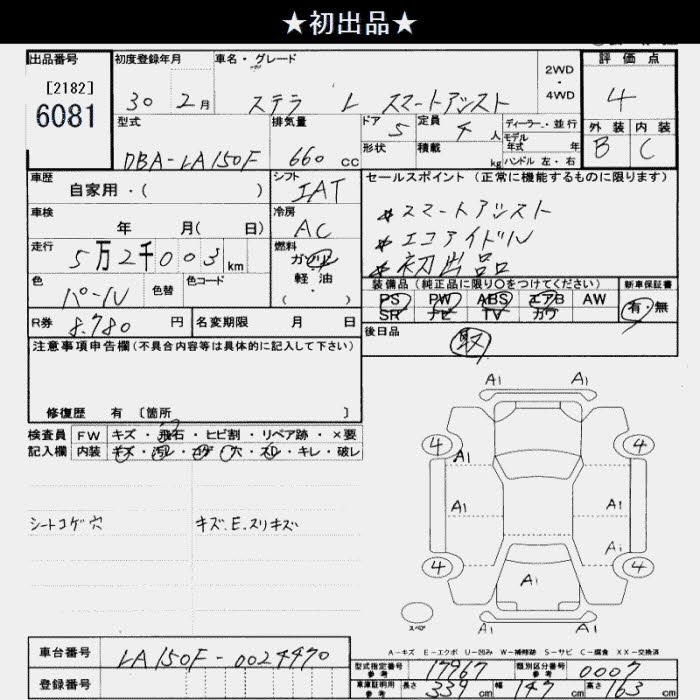 ★初出品★
出品番号 初度登録年月 車名・グレード 2WD・4WD 評価点
[2182]
6081
30 2月 ステラ L スマートアシスト 4
型式 排気量 ドア 5 定員 4 人 ディーラー・並行 外装 内装
モデル年式 年
DBA-LA150F 660 cc 形状 積載 kg ハンドル 左・右 B C
車歴 自家用・( ) シフト IAT セールスポイント (正常に機能するものに限ります)
車検 年 月( 日) 冷房 AC
*スマートアシスト
*エコアイドル
*初出品
走行 5万2千003 km 燃料 ガソリン・軽油・( )
色 パール 色替 色コード
装備品(純正品に限り○をつけてください) 新車保証書
PS PW ABS エアB AW 有・無
SR ナビ TV カワ
R券 8,780 円 名変期限 月 日
後日品 取
注意事項申告欄(不具合内容等は具体的に記入して下さい)
修復歴 有 [箇所 ]
検査員 FW キズ・飛石・ヒビ割・リペア跡・×要
記入欄 内装 キズ・汚レ・コゲ・穴・スレ・キレ・破レ
シートコゲ穴 キズ.E.スリキズ
A1 A1
4 4
A1
A1 A1
A1
4 4
A1
スペア
A1 A1
A-キズ E-エクボ U-凹み W-補修跡 S-サビ C-腐食 XX-交換済
車台番号 LA150F-0024470
型式指定番号 参考 17967 類別区分番号 参考 0007
登録番号
車庫証明用 参考 長さ 339 cm 幅 147 cm 高さ 163 cm